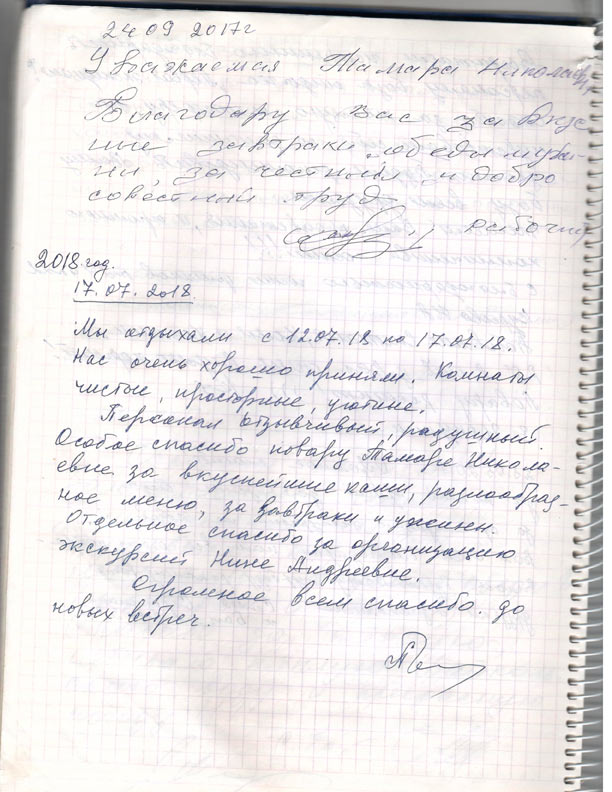 24 09 2017г
Уважаемая Тамара Николаевн
Благодару вас за вкус
ные завтраки, обеды и ужи-
ни, за честный и добро
совестный труд
рабочий
2018 год.
17.07.2018.
Мы отдыхали с 12.07.18 по 17.07.18.
Нас очень хорошо приняли. Комнаты
чистые, просторные, уютные.
Персонал отзывчивый, радушный.
Особое спасибо повару Тамаре Никола-
евне за вкуснейшие каши, разнообраз-
ное меню, за завтраки и ужины.
Отдельное спасибо за организацию
экскурсий Нине Андреевне.
Огромное всем спасибо. до
новых встреч.